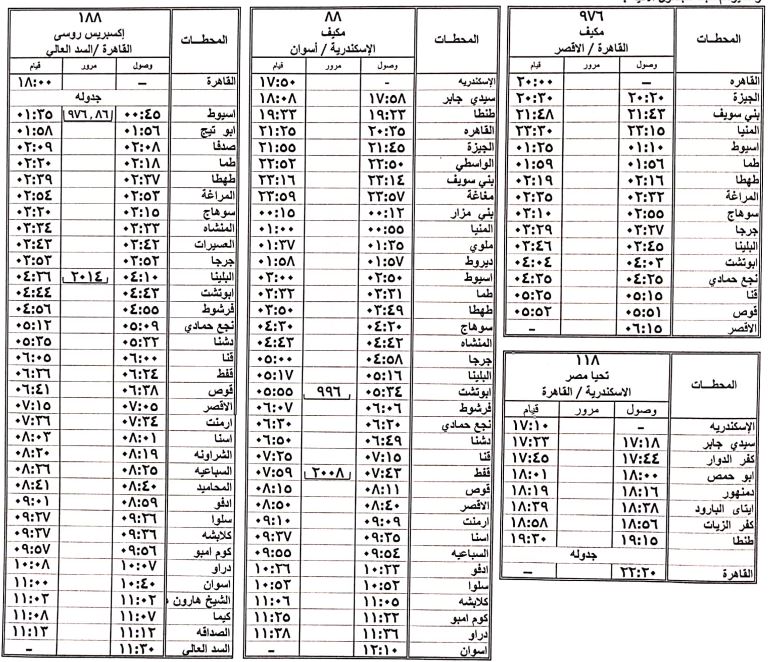 ٩٧٦
مكيف
القاهرة / الأقصر
المحطات
وصول مرور قيام
القاهره – ٢٠:٠٠
الجيزة ٢٠:٢٠ ٢٠:٣٠
بني سويف ٢١:٤٣ ٢١:٤٨
المنيا ٢٣:١٥ ٢٣:٣٠
اسيوط ٠١:١٠ ٠١:٢٥
طما ٠١:٥٦ ٠١:٥٩
طهطا ٠٢:١٦ ٠٢:١٩
المراغة ٠٢:٣٢ ٠٢:٣٥
سوهاج ٠٢:٥٥ ٠٣:١٠
جرجا ٠٣:٢٧ ٠٣:٢٩
البلينا ٠٣:٤٥ ٠٣:٤٦
ابوتشت ٠٤:٠٣ ٠٤:٠٤
نجع حمادي ٠٤:٢٥ ٠٤:٣٥
قنا ٠٥:١٥ ٠٥:٢٥
قوص ٠٥:٥١ ٠٥:٥٢
الاقصر ٠٦:١٥ –
١١٨
تحيا مصر
الاسكندرية / القاهرة
المحطات
وصول مرور قيام
الإسكندريه – ١٧:١٠
سيدي جابر ١٧:١٨ ١٧:٢٣
كفر الدوار ١٧:٤٤ ١٧:٤٥
ابو حمص ١٨:٠٠ ١٨:٠١
دمنهور ١٨:١٦ ١٨:١٩
ايتاى البارود ١٨:٣٨ ١٨:٣٩
كفر الزيات ١٨:٥٦ ١٨:٥٨
طنطا ١٩:١٥ ١٩:٢٠
جدوله
القاهرة ٢٢:٢٠ –
٨٨
مكيف
الإسكندرية / أسوان
المحطات
وصول مرور قيام
الإسكندريه - ١٧:٥٠
سيدي جابر ١٧:٥٨ ١٨:٠٨
طنطا ١٩:٢٣ ١٩:٣٣
القاهره ٢٠:٣٥ ٢١:٢٥
الجيزة ٢١:٤٥ ٢١:٥٥
الواسطي ٢٢:٥٠ ٢٢:٥٢
بني سويف ٢٣:١٤ ٢٣:١٦
مغاغة ٢٣:٥٧ ٢٣:٥٩
بني مزار ٠٠:١٢ ٠٠:١٥
المنيا ٠٠:٥٥ ٠١:٠٠
ملوي ٠١:٣٥ ٠١:٣٧
ديروط ٠١:٥٧ ٠١:٥٨
اسيوط ٠٢:٥٠ ٠٣:٠٠
طما ٠٣:٣١ ٠٣:٣٢
طهطا ٠٣:٤٩ ٠٣:٥٠
سوهاج ٠٤:٢٠ ٠٤:٣٠
المنشاه ٠٤:٤٢ ٠٤:٤٣
جرجا ٠٤:٥٨ ٠٥:٠٠
البلينا ٠٥:١٦ ٠٥:١٧
ابوتشت ٠٥:٣٤ ٩٩٦ ٠٥:٥٥
فرشوط ٠٦:٠٦ ٠٦:٠٧
نجع حمادي ٠٦:٢٠ ٠٦:٣٠
دشنا ٠٦:٤٩ ٠٦:٥٠
قنا ٠٧:١٥ ٠٧:٢٥
قفط ٠٧:٤٣ ٢٠٠٨ ٠٧:٥٩
قوص ٠٨:١١ ٠٨:١٥
الأقصر ٠٨:٤٠ ٠٨:٥٠
ارمنت ٠٩:٠٩ ٠٩:١٠
اسنا ٠٩:٣٥ ٠٩:٣٧
السباعيه ٠٩:٥٤ ٠٩:٥٥
ادفو ١٠:٢٣ ١٠:٢٦
سلوا ١٠:٥٢ ١٠:٥٣
كلابشه ١١:٠٥ ١١:٠٦
كوم امبو ١١:٢٢ ١١:٢٥
دراو ١١:٣٦ ١١:٣٨
اسوان ١٢:١٠ –
١٨٨
إكسبريس روسى
القاهرة /السد العالي
المحطات
وصول مرور قيام
القاهرة – ١٨:٠٠
جدوله
اسيوط ٠٠:٤٥ ٩٧٦،٨٦ ٠١:٣٥
ابو تيج ٠١:٥٦ ٠١:٥٨
صدفا ٠٢:٠٨ ٠٢:٠٩
طما ٠٢:١٨ ٠٢:٢٠
طهطا ٠٢:٣٧ ٠٢:٣٩
المراغة ٠٢:٥٣ ٠٢:٥٤
سوهاج ٠٣:١٥ ٠٣:٢٠
المنشاه ٠٣:٣٣ ٠٣:٣٤
العسيرات ٠٣:٤٢ ٠٣:٤٣
جرجا ٠٣:٥٢ ٠٣:٥٣
البلينا ٠٤:١٠ ٢٠١٤ ٠٤:٢٦
ابوتشت ٠٤:٤٣ ٠٤:٤٤
فرشوط ٠٤:٥٥ ٠٤:٥٦
نجع حمادي ٠٥:٠٩ ٠٥:١٢
دشنا ٠٥:٣٢ ٠٥:٣٥
قنا ٠٦:٠٠ ٠٦:٠٥
قفط ٠٦:٢٤ ٠٦:٢٦
قوص ٠٦:٣٨ ٠٦:٤١
الاقصر ٠٧:٠٥ ٠٧:١٥
ارمنت ٠٧:٣٤ ٠٧:٣٦
اسنا ٠٨:٠١ ٠٨:٠٣
الشراونه ٠٨:١٩ ٠٨:٢٠
السباعيه ٠٨:٢٥ ٠٨:٢٦
المحاميد ٠٨:٤٠ ٠٨:٤١
ادفو ٠٨:٥٩ ٠٩:٠١
سلوا ٠٩:٢٦ ٠٩:٢٧
كلابشه ٠٩:٣٦ ٠٩:٣٧
كوم امبو ٠٩:٥٦ ٠٩:٥٧
دراو ١٠:٠٧ ١٠:٠٨
اسوان ١٠:٤٠ ١١:٠٠
الشيخ هارون ١١:٠٢ ١١:٠٣
كيما ١١:٠٧ ١١:٠٨
الصداقه ١١:١٢ ١١:١٣
السد العالي ١١:٣٠ –